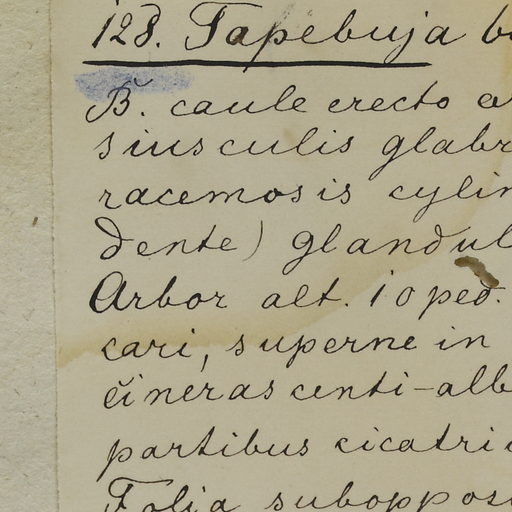 128. Tapebuja
B. caule erecto
siusculis glabr
racemosis cylin
dente) glandul
Arbor alt. 10 ped.
cari, superne in
cineras centi-alb
partibus cicatri
Folia suboppos